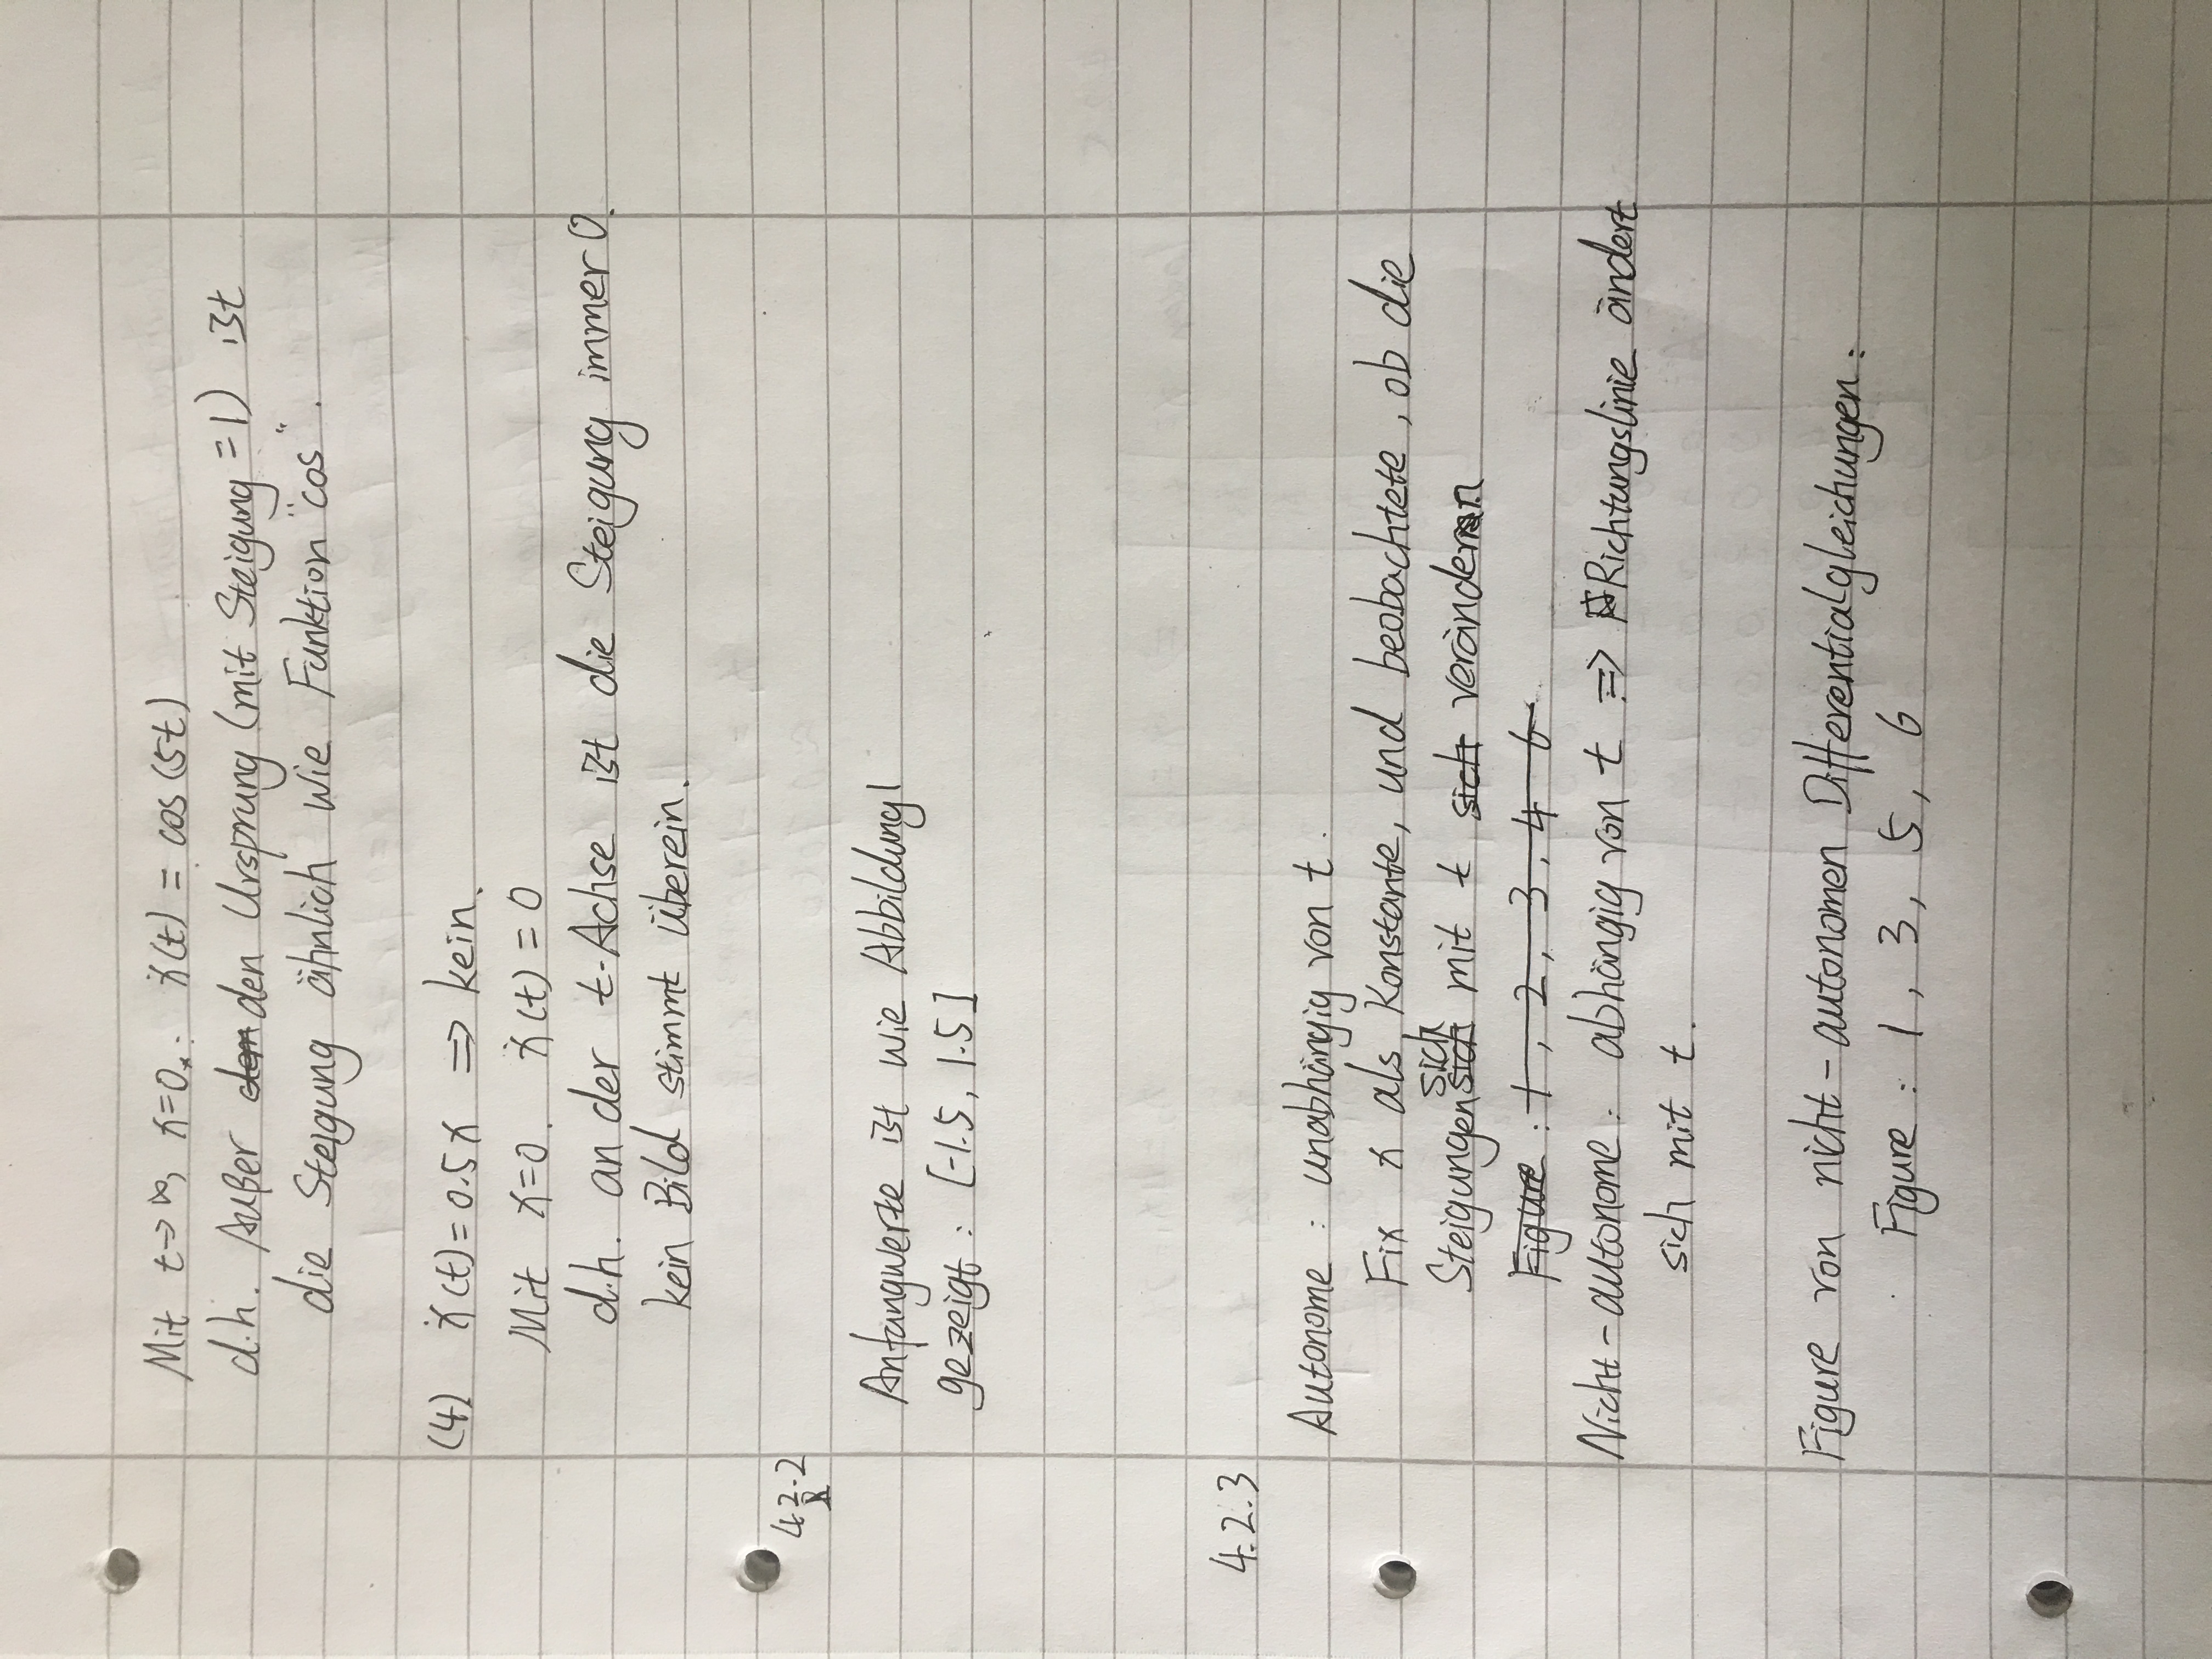 Mit t→∞, x=0. : ẋ(t) = cos(5t)
d.h. Außer den Ursprung (mit Steigung =1) ist
die Steigung ähnlich wie Funktion "cos".
(4) ẋ(t)=0.5x ⇒ kein.
Mit x=0. ẋ(t) = 0
d.h. an der t-Achse ist die Steigung immer 0.
kein Bild stimmt überein.
4.2.2
Anfangwerte ist wie Abbildung 1
gezeigt : [-1.5, 1.5]
4.2.3
Autonome : unabhängig von t.
Fix x als Konstante, und beobachtete, ob die
Steigungen sich mit t verändern
Figure : 1, 2, 3, 4 6
Nicht-autonome : abhängig von t ⇒ Richtungslinie ändert
sich mit t.
Figure von nicht-autonomen Differentialgleichungen :
Figure : 1, 3, 5, 6